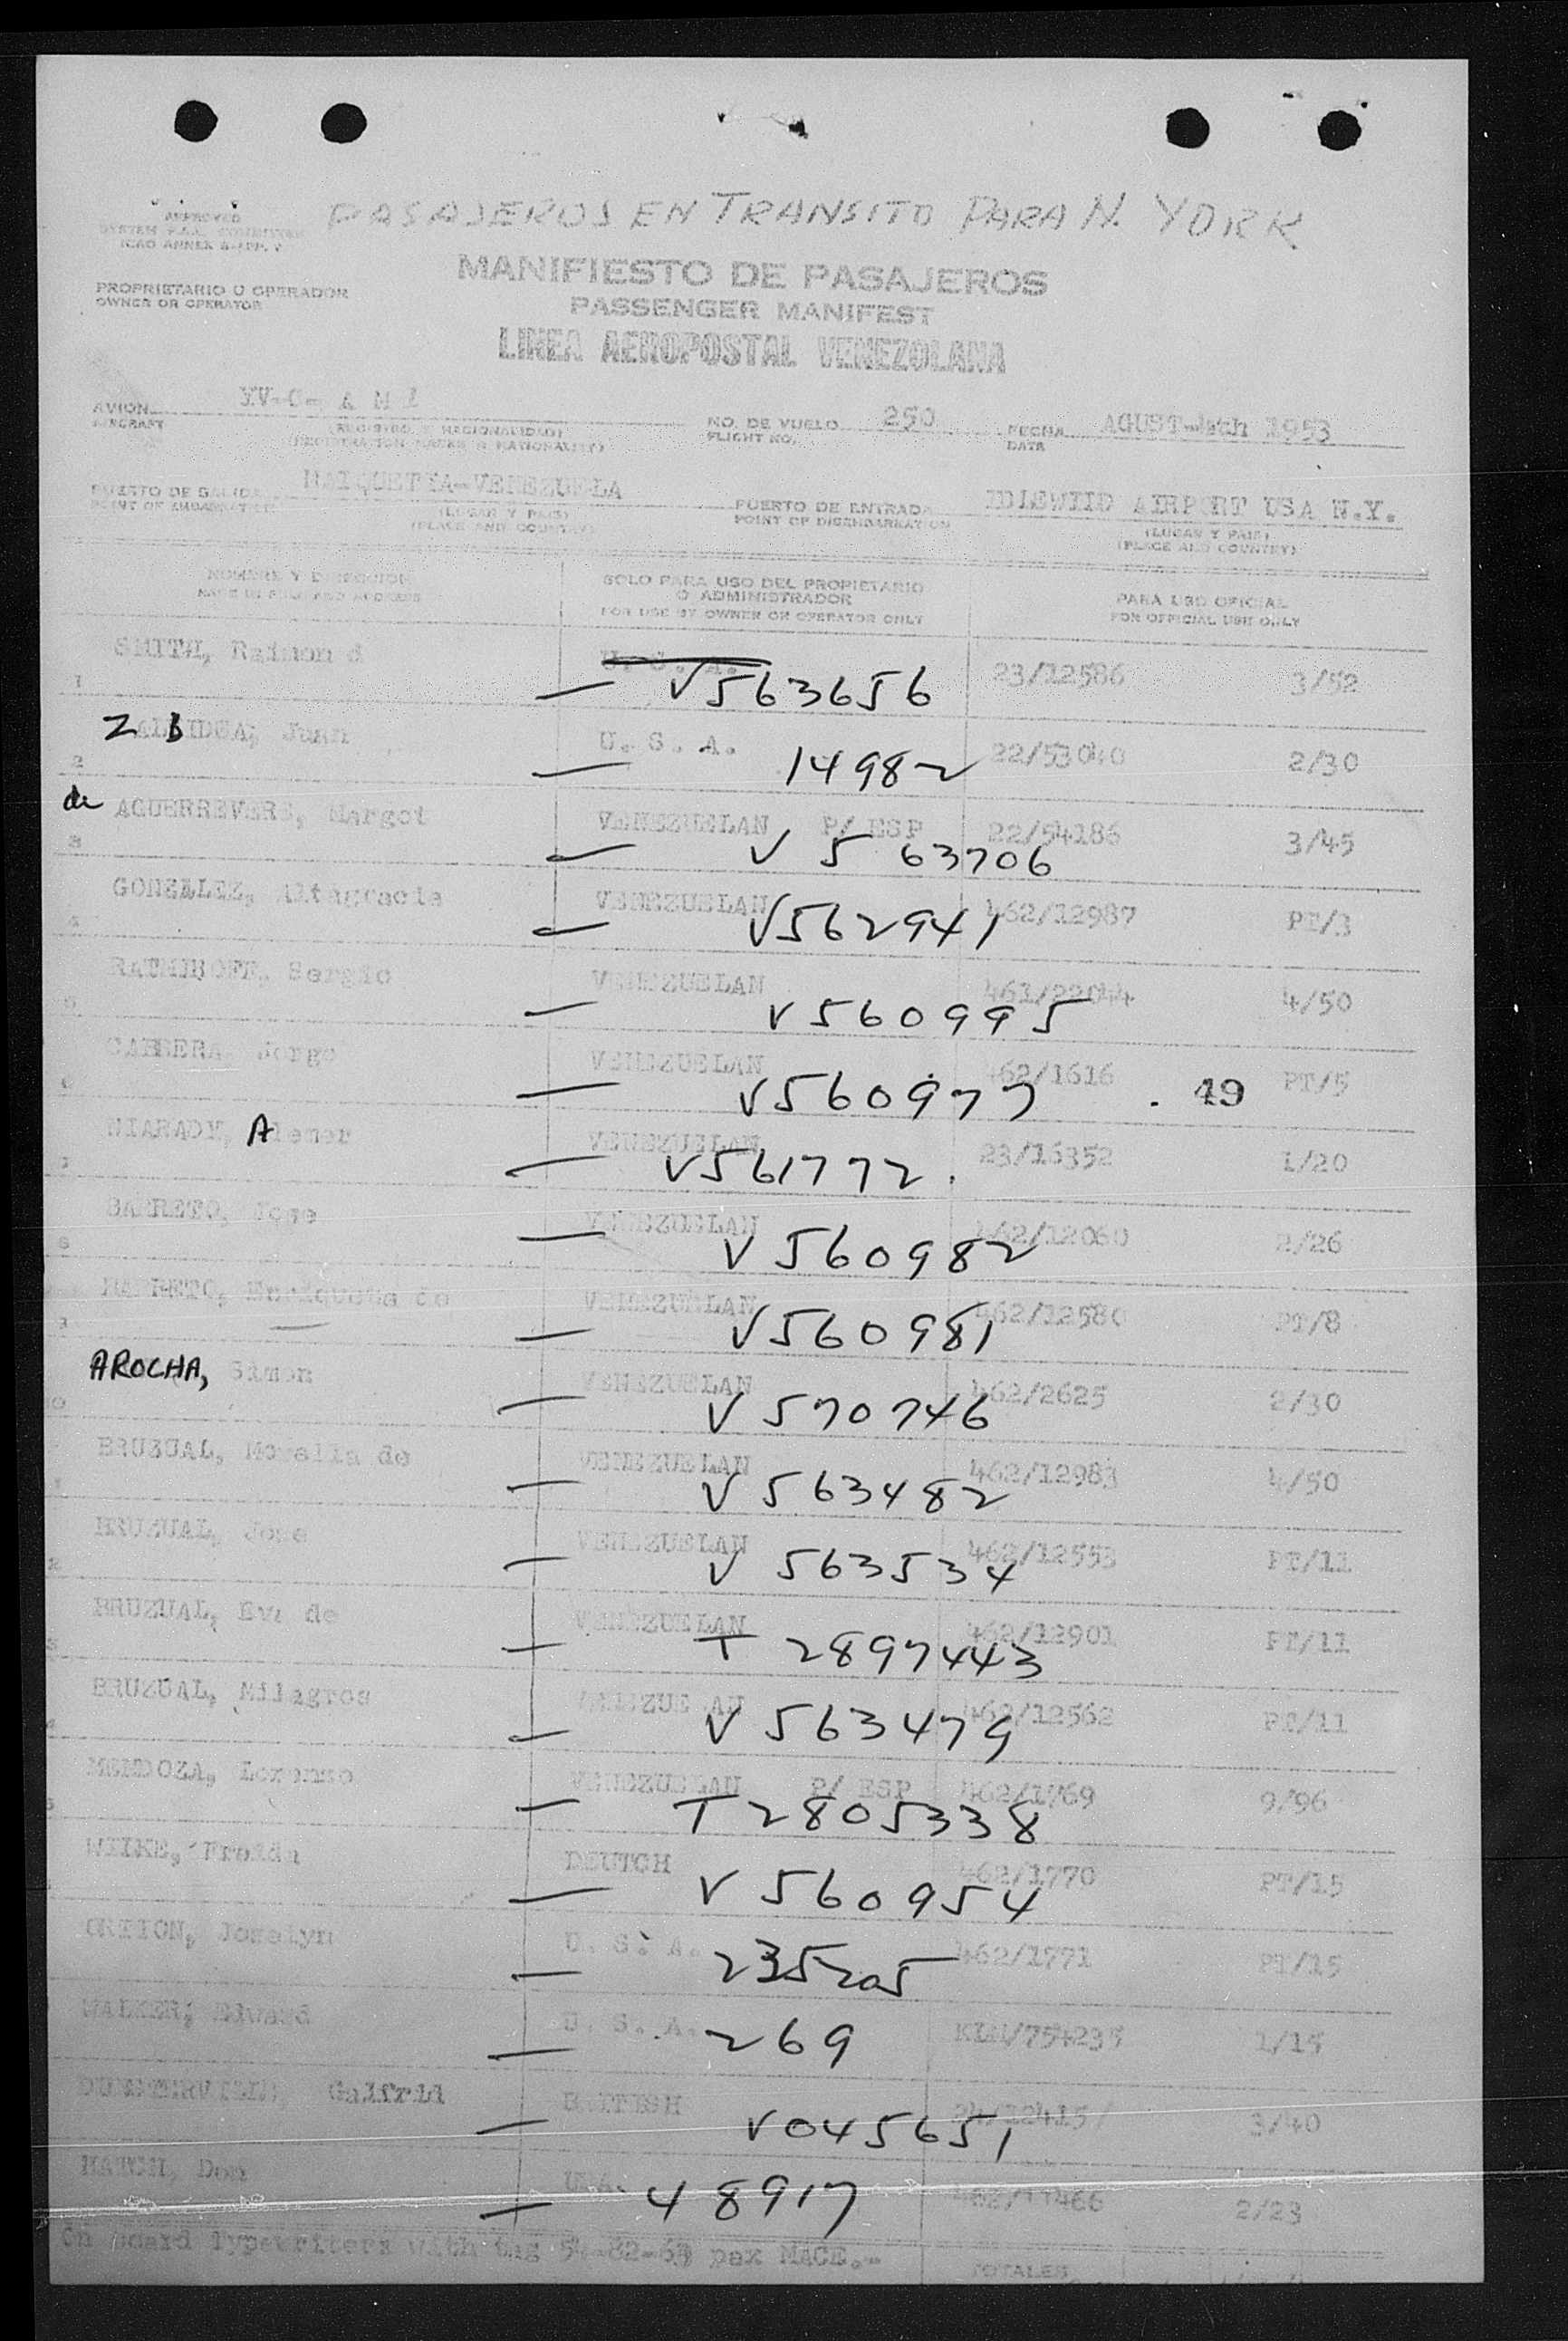 PASAJEROS EN TRANSITO PARA N. YORK
APPROVED
ICAO ANNEX 9-APP. 7
MANIFIESTO DE PASAJEROS
PROPRIETARIO U OPERADOR
OWNER OR OPERATOR
PASSENGER MANIFEST
LINEA AEROPOSTAL VENEZOLANA
AVION YV-C- A N
AIRCRAFT
NO. DE VUELO 250
FLIGHT NO.
FECHA AGUST 1953
DATE
PUERTO DE SALIDA MAIQUETIA-VENEZUELA
POINT OF EMBARKATION
(LUGAR Y PAIS)
(PLACE AND COUNTRY)
PUERTO DE ENTRADA IDLEWIID AIRPORT USA N.Y.
POINT OF DISEMBARKATION
(LUGAR Y PAIS)
(PLACE AND COUNTRY)
NOMBRE Y DIRECCION
SOLO PARA USO DEL PROPIETARIO
O ADMINISTRADOR
FOR USE BY OWNER OR OPERATOR ONLY
PARA USO OFICIAL
FOR OFFICIAL USE ONLY
1 SMITH, Raimon d U. S. A. 23/12586 3/52
— V563656
2 Juan U. S. A. 22/53040 2/30
— 14982
3 de AGUERREVERE, Margot VENEZUELAN P/ ESP 22/54186 3/45
— V 5 63706
GONZALEZ, Altagracia VENEZUELAN 462/12987 PT/3
— V562941
Sergio VENEZUELAN 461/22044 4/50
— V560995
CABRERA, Jorge VENEZUELAN 462/1616 PT/5
— V560977 . 49
NIARADY, A VENEZUELAN 23/16352 1/20
— V561772.
BARRETO, Jose VENEZUELAN 462/12060 2/26
— V560982
BARRETO, Enriqueta de VENEZUELAN 462/12580 PT/8
— V560981
AROCHA, Simon VENEZUELAN 462/2625 2/30
— V 570746
BRUZUAL, Morella de VENEZUELAN 462/12983 4/50
— V 563482
BRUZUAL, Jose VENEZUELAN 462/12553 PT/11
— V 563534
BRUZUAL, Eva de VENEZUELAN 462/12901 PT/11
— T 2897443
BRUZUAL, Milagros 462/12562 PT/11
— V 563479
MENDOZA, Lorenzo VENEZUELAN P/ ESP 462/1769 9/96
— T2805338
WILKE, Froida DEUTCH 462/1770 PT/15
— V 560954
Joselyn U. S. A. 462/1771 PT/15
— 235205
WALKER, Edward U. S. A. KLM/754235 1/15
— 269
Galfrid BRITISH 3/40
— V045651
HATCH, Don 2/23
— 48917
On board Typewriters with tag 54-82-69 pax MACE.-
TOTALES